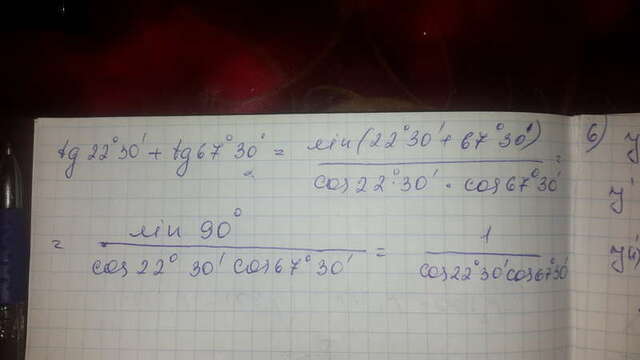 tg 22°30' + tg 67°30' = sin(22°30' + 67°30') / cos 22°30' · cos 67°30' =
= sin 90° / cos 22° 30' cos 67° 30' = 1 / cos 22°30' cos 67°30'
6) y
y'
y(